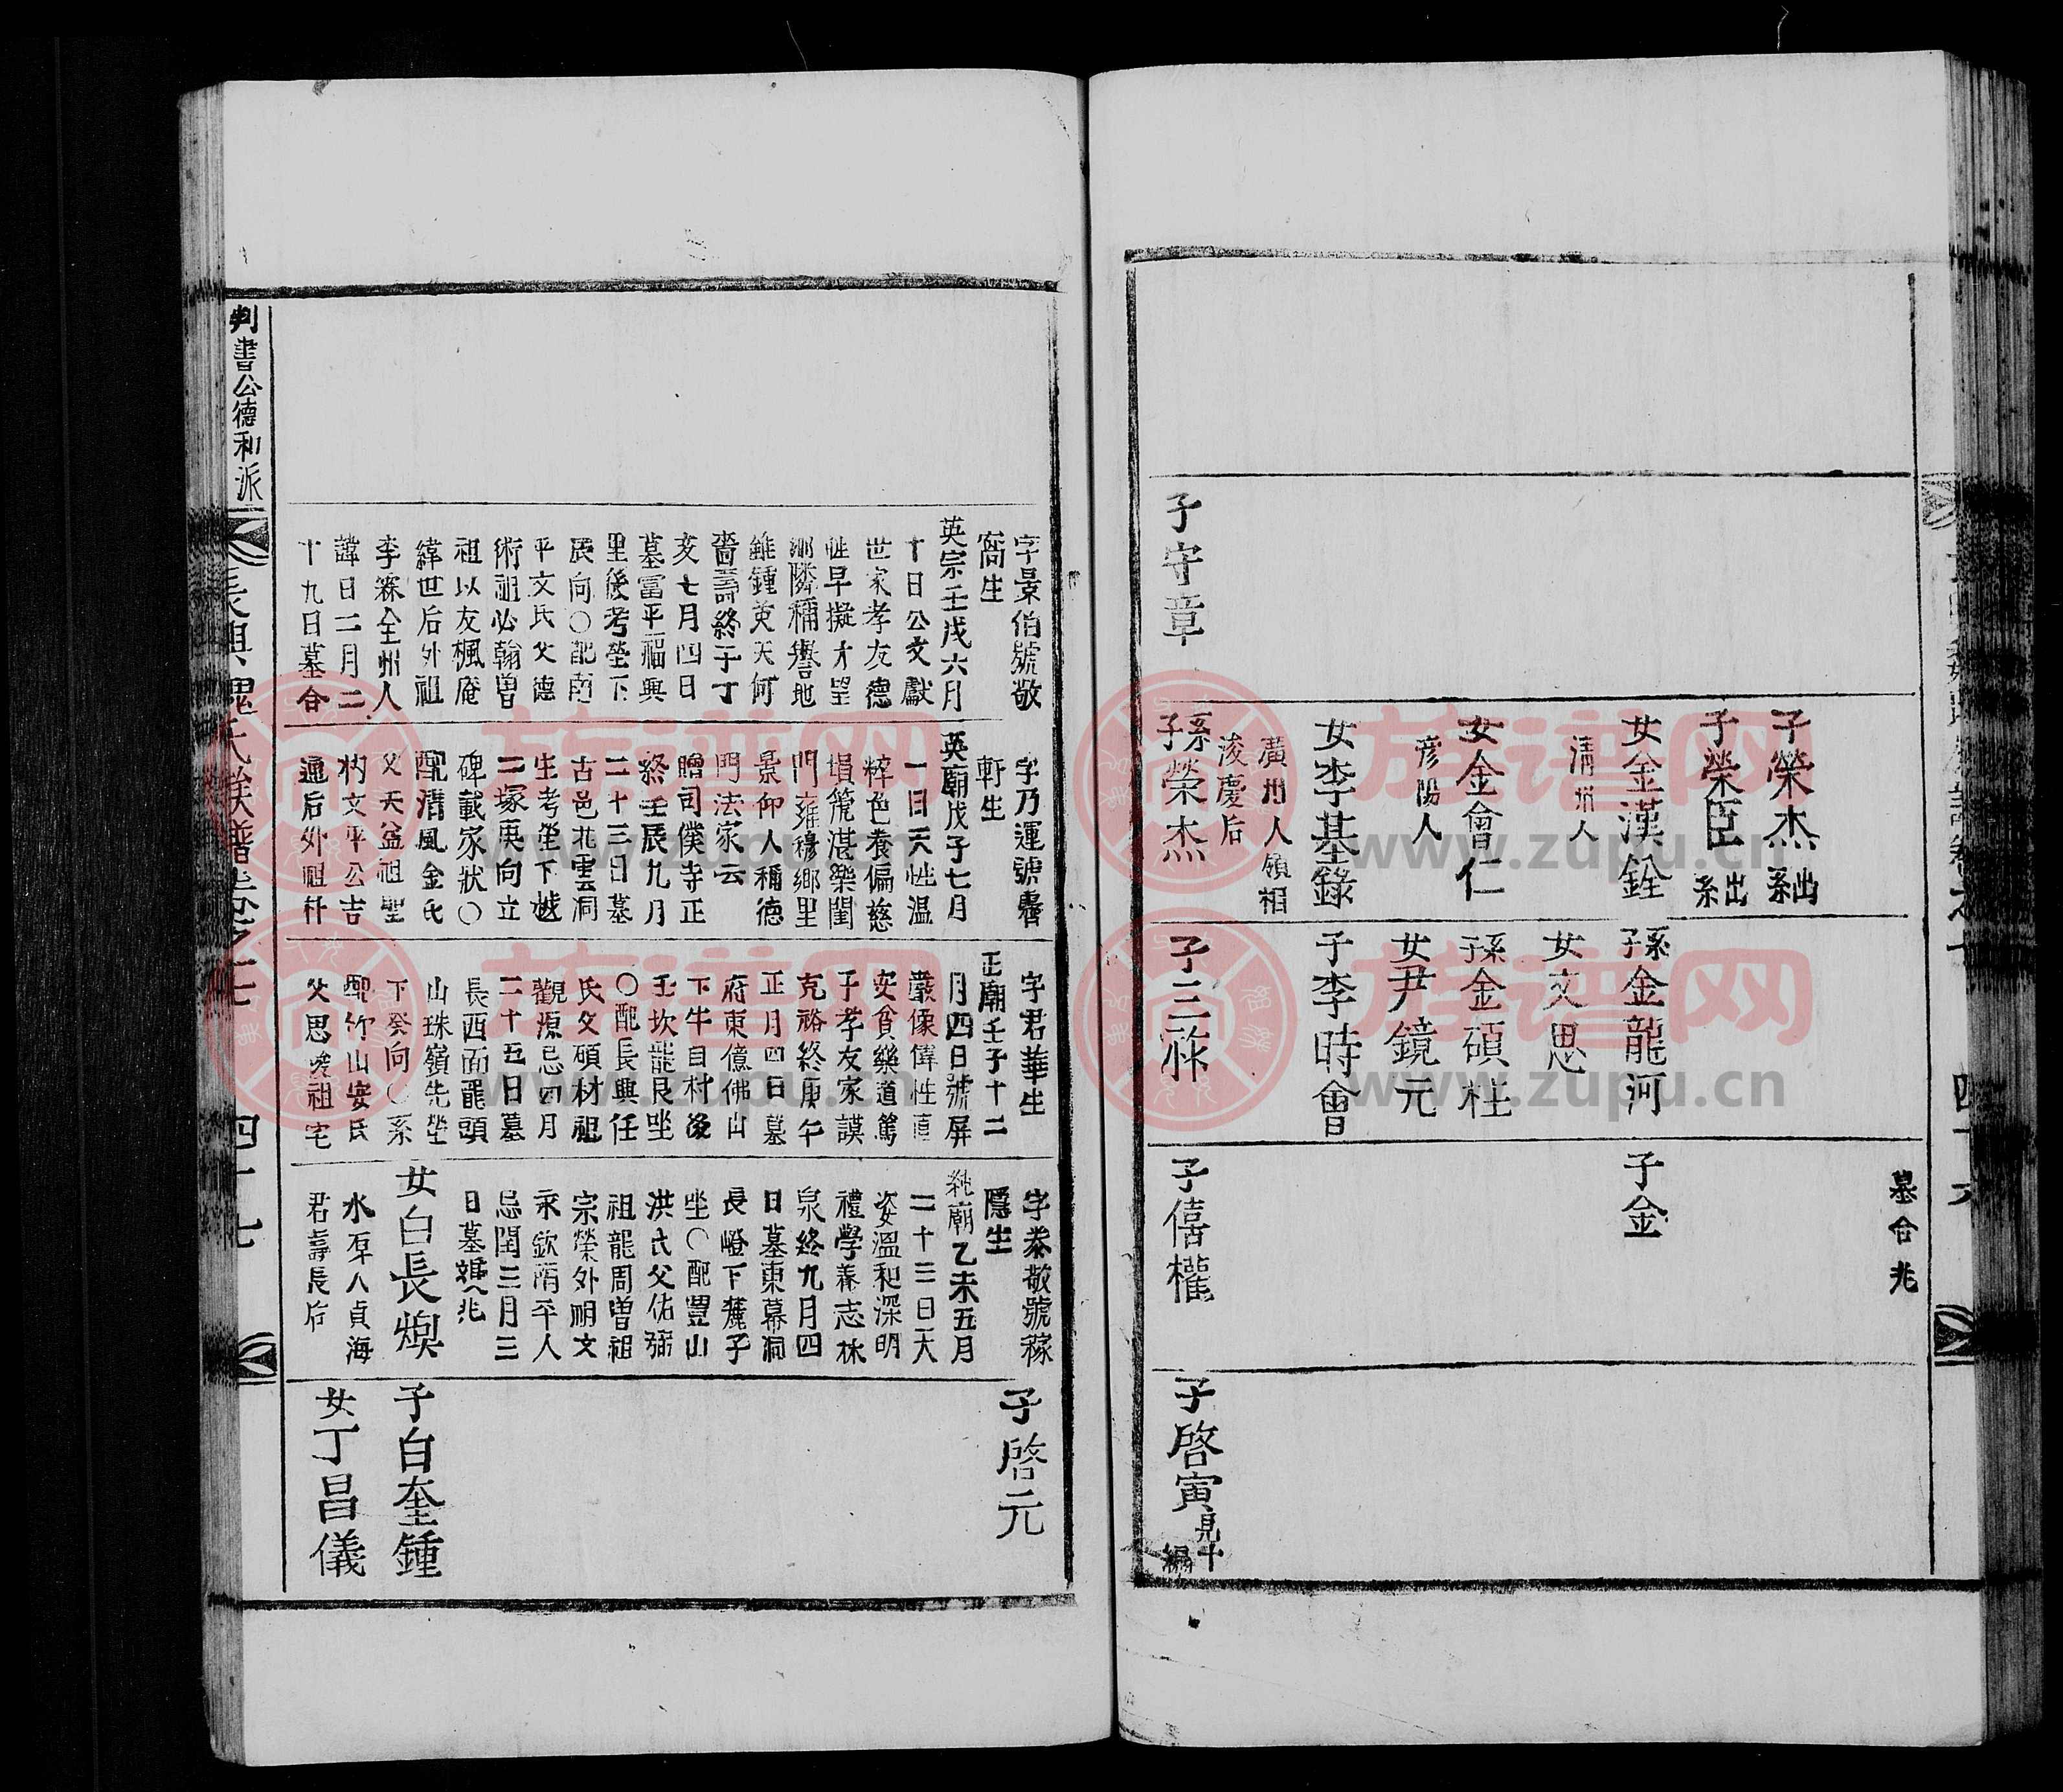 墓合兆
子榮杰
出系
子榮臣
出系
女金漢銓
淸州人
女金會仁
彦陽人
女李基錄
廣州人領相
浚慶后
系子榮杰
孫金龍河
女文思
孫金碩柱
女尹鏡元
子李時會
子守章
子三
子金
子僖權
子啓寅
見十
編
四十六
字景伯號敬
窩生
英宗壬戌六月
十日公文獻
世家孝友德
性早擬才望
洞隣稱譽地
雖鍾英天何
嗇壽終于丁
亥七月四日
墓富平福興
里後考塋下
辰向〇配南
平文氏父德
術祖必翰曾
祖以友楓庵
緯世后外祖
李寀全州人
諱日二月二
十九日墓合
字乃運號
軒生
英廟戊子七月
一日天性温
粹色養偏慈
塤箎湛樂閨
門雍穆鄕里
景仰人稱德
門法家云
贈司僕寺正
終壬辰九月
二十三日墓
古邑北雲洞
生考塋下
二塚庚向立
碑載家狀〇
配淸風金氏
父天益祖聖
杓文平公吉
通后外祖
字君華生
正廟壬子十二
月四日號屛
巖像偉性直
安貧樂道篤
于孝友家謨
克裕終庚午
正月四日墓
府東億佛山
下牛目村後
壬坎龍艮坐
〇配長興任
氏父碩材祖
觀源忌四月
二十五日墓
長西面龍頭
山珠嶺先塋
下癸向〇系
配竹山安氏
父思 祖宅
字泰敬號稼
隱生
純廟乙未五月
二十三日天
姿溫和深明
禮學養志林
泉終九月四
日墓東幕洞
長嶝下麓子
坐〇配豐山
洪氏父佑
祖龍周曾祖
宗榮外祖文
永欽南平人
忌閏三月三
日墓 兆
女白長煥
水原人貞海
君壽長后
子啓元
子白奎鍾
女丁昌儀
判書公德和派
長興魏氏族譜卷之七
四十七
族谱网
www.zupu.cn
族谱网
www.zupu.cn
族谱网
www.zupu.cn
族谱网
www.zupu.cn